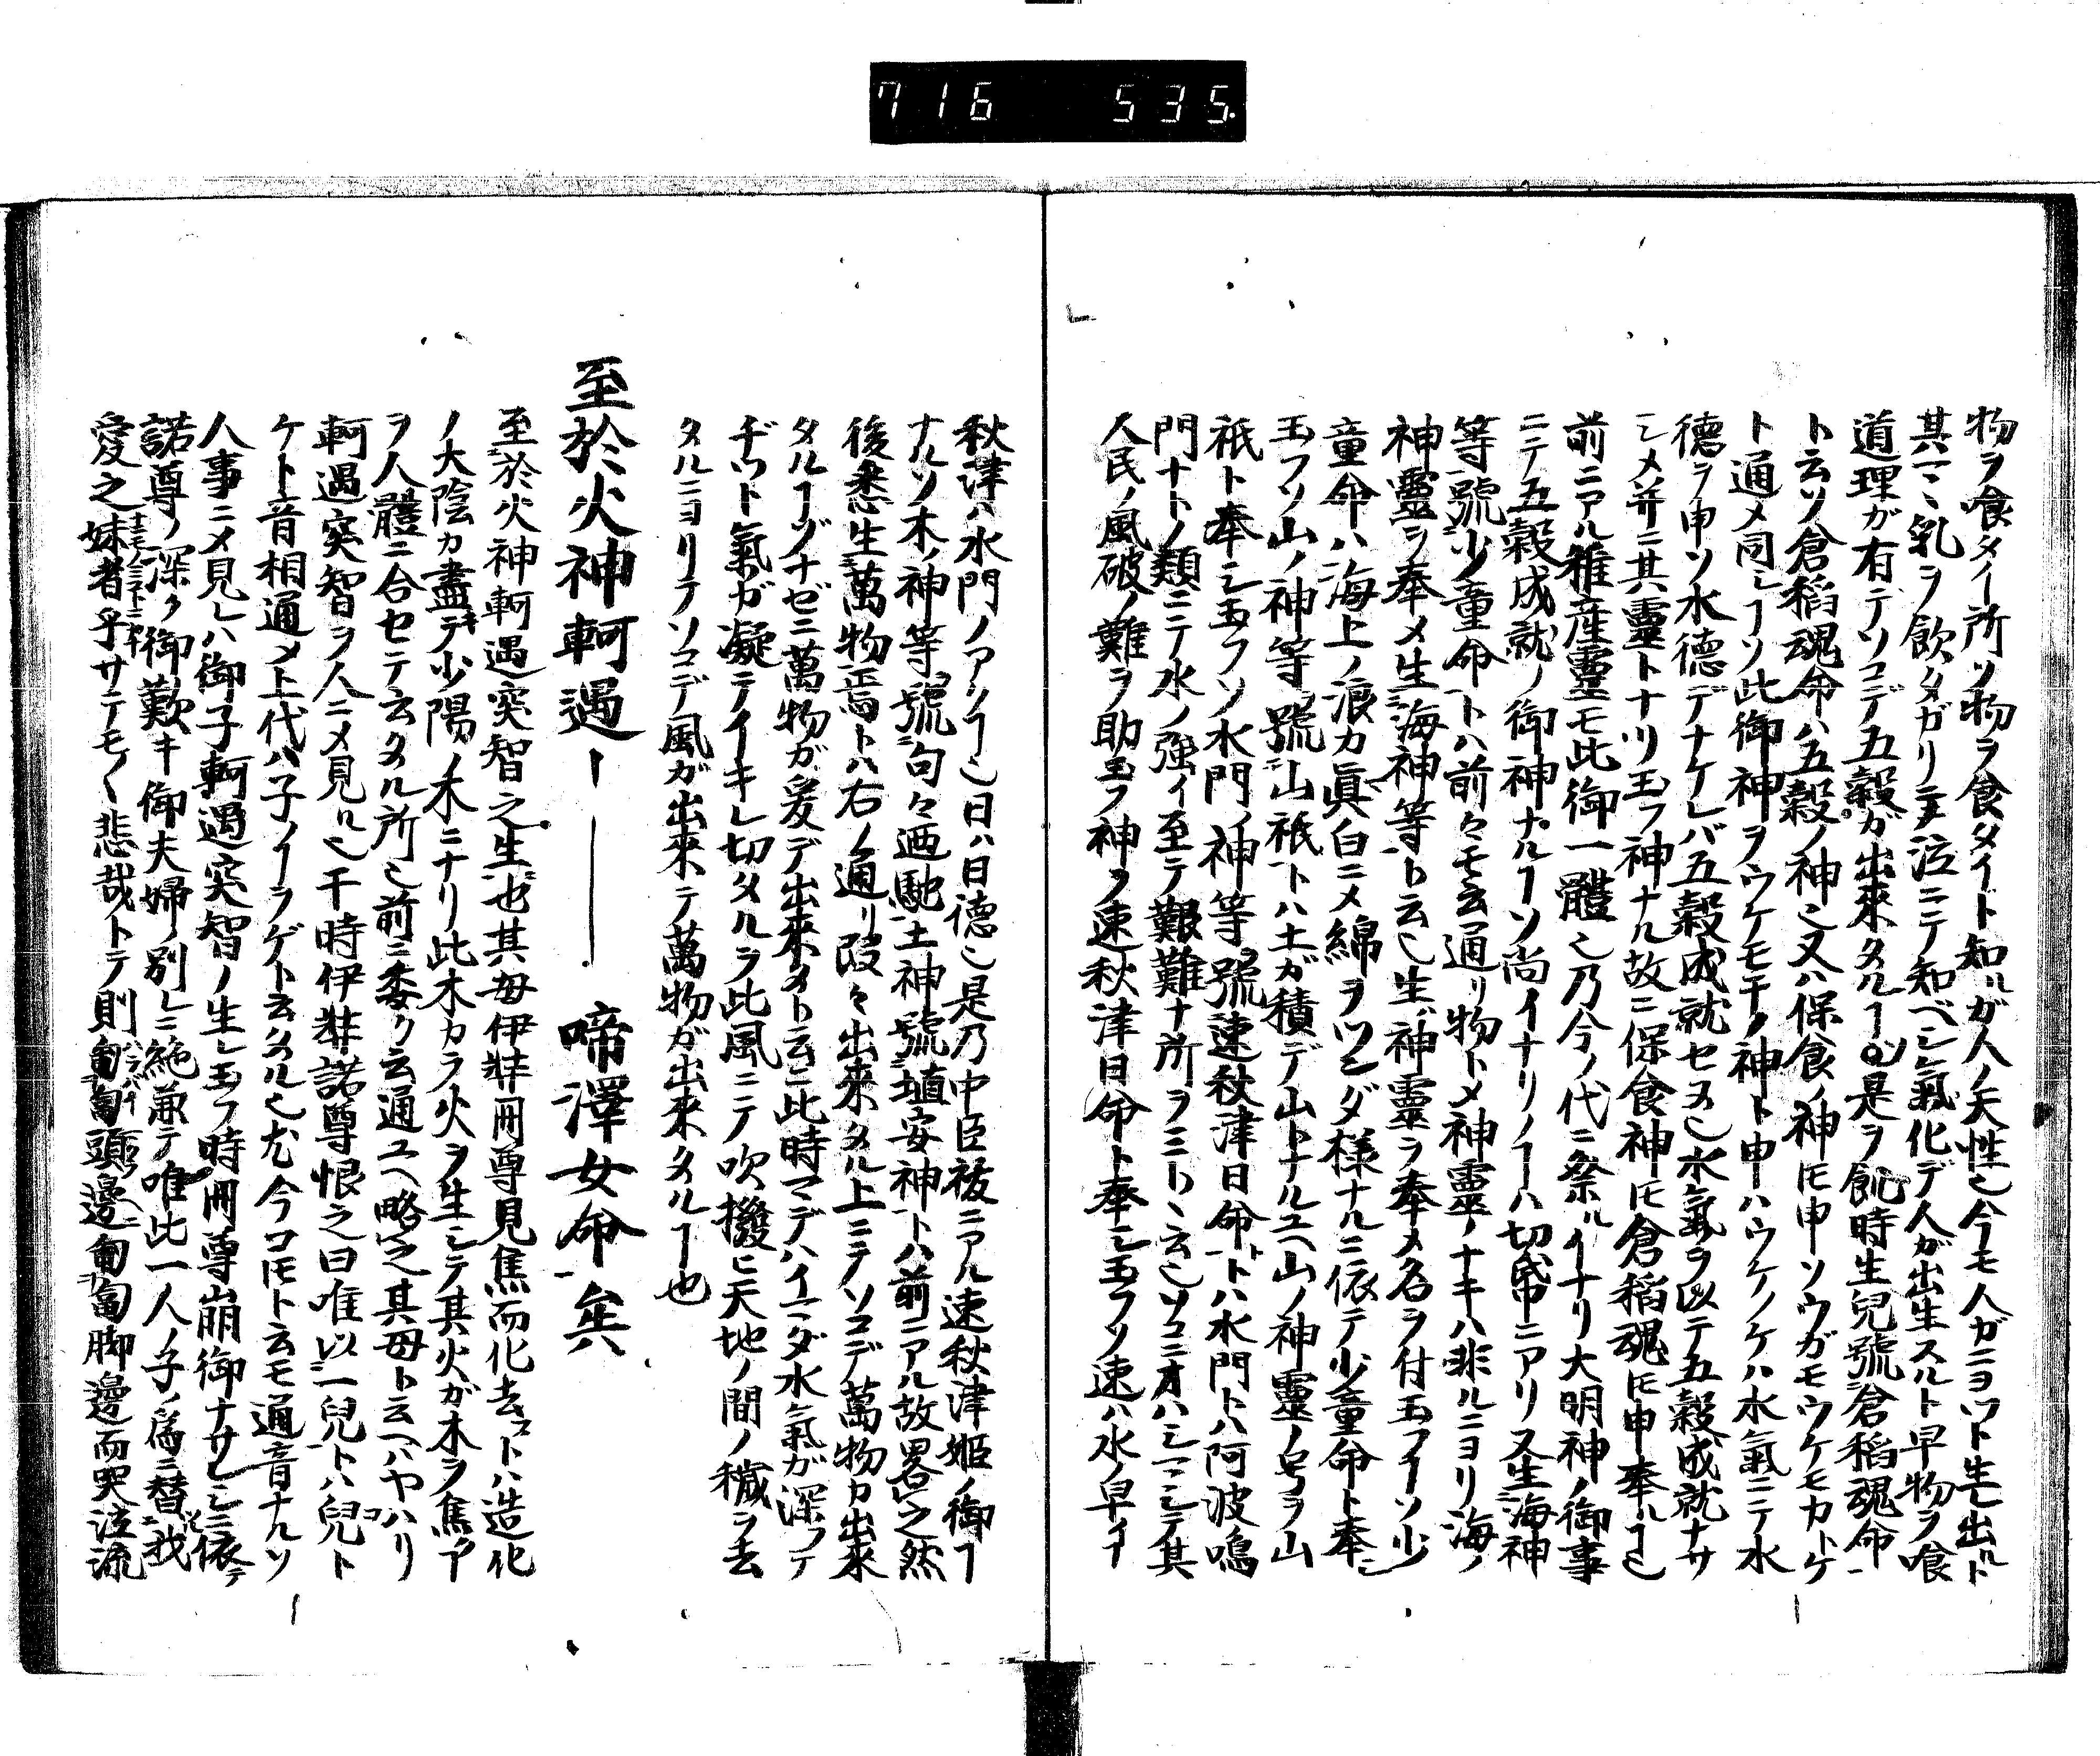 716 535.
物ヲ喰タイ所ソ物ヲ食タイト知ルガ人ノ天性也今モ人ガニヨツト生レ出ルト
其マヽ乳ヲ飲タガリテ泣ニテ知ベシ氣化デ人ガ出生スルト早物ヲ喰
道理ガ有テソコデ五穀ガ出來タルヿゾ是ヲ飢時生兒號倉稻魂命
ト云ソ倉稻魂命ハ五穀ノ神也又ハ保食ノ神𪜈申ソウガモウケモカトケ
ト通メ同シヿソ此御神ヲウケモチノ神ト申ハウケノケハ水氣ニテ水
德ヲ申ソ水德デナケレバ五穀成就セヌ也水氣ヲ以テ五穀成就ナサ
シメ并ニ其靈トナリ玉フ神ナル故ニ保食神𪜈倉稻魂𪜈申奉ルヿ也
前ニアル稚産靈モ此御一體也乃今ノ代ニ祭ルイナリ大明神ノ御事
ニテ五穀成就ノ御神ナルヿソ尚イナリノヿハ切帋中ニアリ又生海神
等號少童命トハ前々モ云通リ物トメ神靈ノナキハ非ルニヨリ海ノ
神靈ヲ奉メ生海神等ト云也生ハ神靈ヲ奉メ名ヲ付玉フヿソ少
童命トハ海上ノ浪カ眞白ニメ綿ヲツンダ樣ナルニ依テ少童命ト奉シ
玉フソ山ノ神等號山祇トハ土ガ積デ山トナルユヘ山ノ神靈ノ号ヲ山
祇ト奉シ玉フソ水門ノ神等號速秋津日命トハ水門トハ阿波鳴
門ナトノ類ニテ水ノ強イ至テ艱難ナ所ヲミトヽ云也ソコニオハシマシテ其
人民ノ風破ノ難ヲ助玉フ神ヲ速秋津日命ト奉シ玉フソ速ハ水ノ早イヿ
秋津ハ水門ノアクヿ也日ハ日德也是乃中臣祓ニアル速秋津姫ノ御ヿ
ナルソ木ノ神等號句々廼馳土神號埴安神トハ前ニアル故畧之然
後悉生萬物焉トハ右ノ通リ段々出來タル上ニテソコデ萬物カ出來
タルヿゾナゼニ萬物ガ爰デ出來タト云ニ此時マデハイマダ水氣ガ深フテ
ヂツト氣ガ凝テイキレ切タルヲ此風ニテ吹撥ヒ天地ノ間ノ穢ヲ去
タルニヨリテソコデ風ガ出來テ萬物ガ出來タルヿ也
至於火神軻遇ー——啼澤女命矣
至於火神軻遇突智之生也其母伊弉冊尊見焦而化去ストハ造化
ノ大陰カ盡キテ少陽ノ木ニナリ此木カラ火ヲ生シテ其火ガ木ヲ焦ヿ
ヲ人體ニ合セテ云タル所也前ニ委ク云通ユヘ略之其母ト云ヘハヤハリ
軻遇突智ヲ人ニメ見ル也于時伊弉諾尊恨之曰唯以一兒トハ兒ト
ケト音相通メ上代ハ子ノヿヲゲト云タル也尤今コ𪜈ト云モ通音ナルソ
人事ニメ見レハ御子軻遇突智ノ生レ玉フ時冊尊崩御ナサレシニ依テ
諾尊ノ深ク御歎キ御夫婦ノ別レニ絶兼テ唯此一人ノ子ノ爲ニ替我
愛之妹者乎サテモ〱悲哉トテ則匍匐頭邊匍匐脚邊而哭泣流